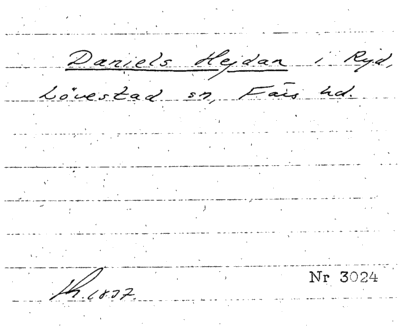 Daniels Hejdan i Ryd,
Lövestad sn, Färs hd.
Nr 3024